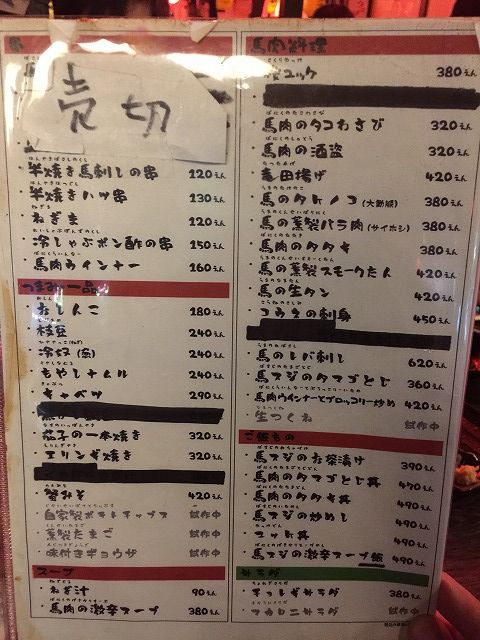 串
売切
半焼き馬刺しの串 120えん
半焼きハツ串 130えん
ねぎま 120えん
冷しゃぶポン酢の串 150えん
馬肉ウインナー 160えん
つまみ一品
おしんこ 180えん
枝豆 240えん
冷奴 240えん
もやしナムル 240えん
キャベツ 290えん
茄子の一本焼き 320えん
エリンギ焼き 320えん
蟹みそ 420えん
自家製ポテトチップス 試作中
薫製たまご 試作中
味付きギョウザ 試作中
スープ
ねぎ汁 90えん
馬肉の激辛スープ 380えん
馬肉料理
桜ユッケ 380えん
馬肉のタコわさび 320えん
馬肉の酒盗 320えん
竜田揚げ 420えん
馬のタケノコ (大動脈) 380えん
馬の薫製バラ肉 (サイボシ) 380えん
馬肉のタタキ 380えん
馬の薫製スモークたん 420えん
馬の生タン 420えん
コウネの刺身 450えん
馬のレバ刺し 620えん
馬スジのタマゴとじ 360えん
馬肉ウインナーとブロッコリー炒め 420えん
生つくね 試作中
ご飯もの
馬スジのお茶漬け 390えん
馬肉のタマゴとじ丼 470えん
馬肉のタタキ丼 490えん
馬スジの炒めし 490えん
ユッケ丼 490えん
馬スジの激辛スープ飯 490えん
サラダ
チョレギサラダ 380えん
マカロニサラダ 試作中